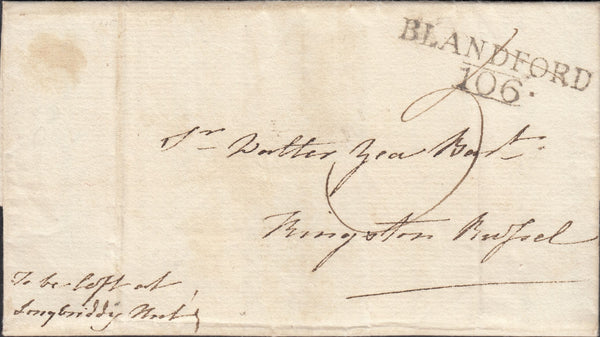 BLANDFORD
106.
Sr. Walter Yea Bart.
Kingston Russel
To be left at
Longbriddy